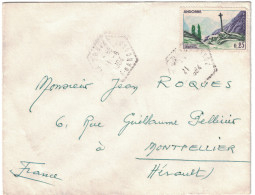 ANDORRE
0.25
Monsieur Jean ROQUES
6, Rue Guillaume Pellicier
à
MONTPELLIER
France
Hérault)